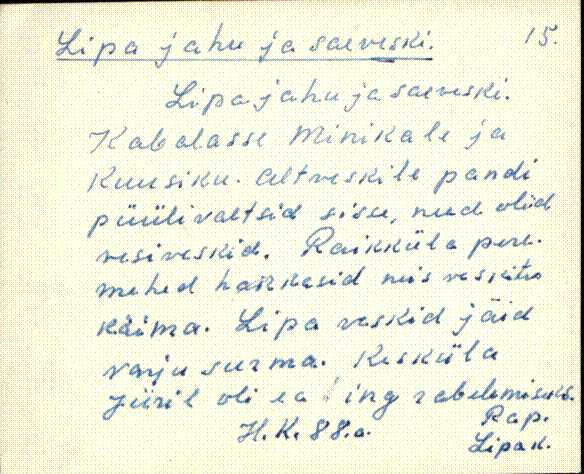 Lipa jahu ja saeveski. 15.
Lipa jahu ja saeveski.
Kabalasse Minikale ja
Kuusiku. Altveskile pandi
püülivaltsid sisse, need olid
vesiveskid. Raikküla pere-
mehed hakkasid neis veskites
käima. Lipa veskid jäid
varju surma. Kesküla
Jüril oli ea ing rabelemiseks.
H.K. 88.a. Rap.
Lipa k.